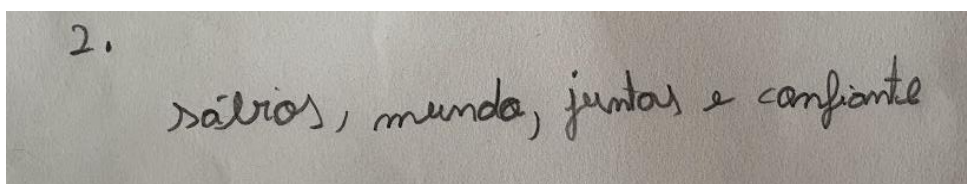 2.
sábios, mundo, juntos e confiante